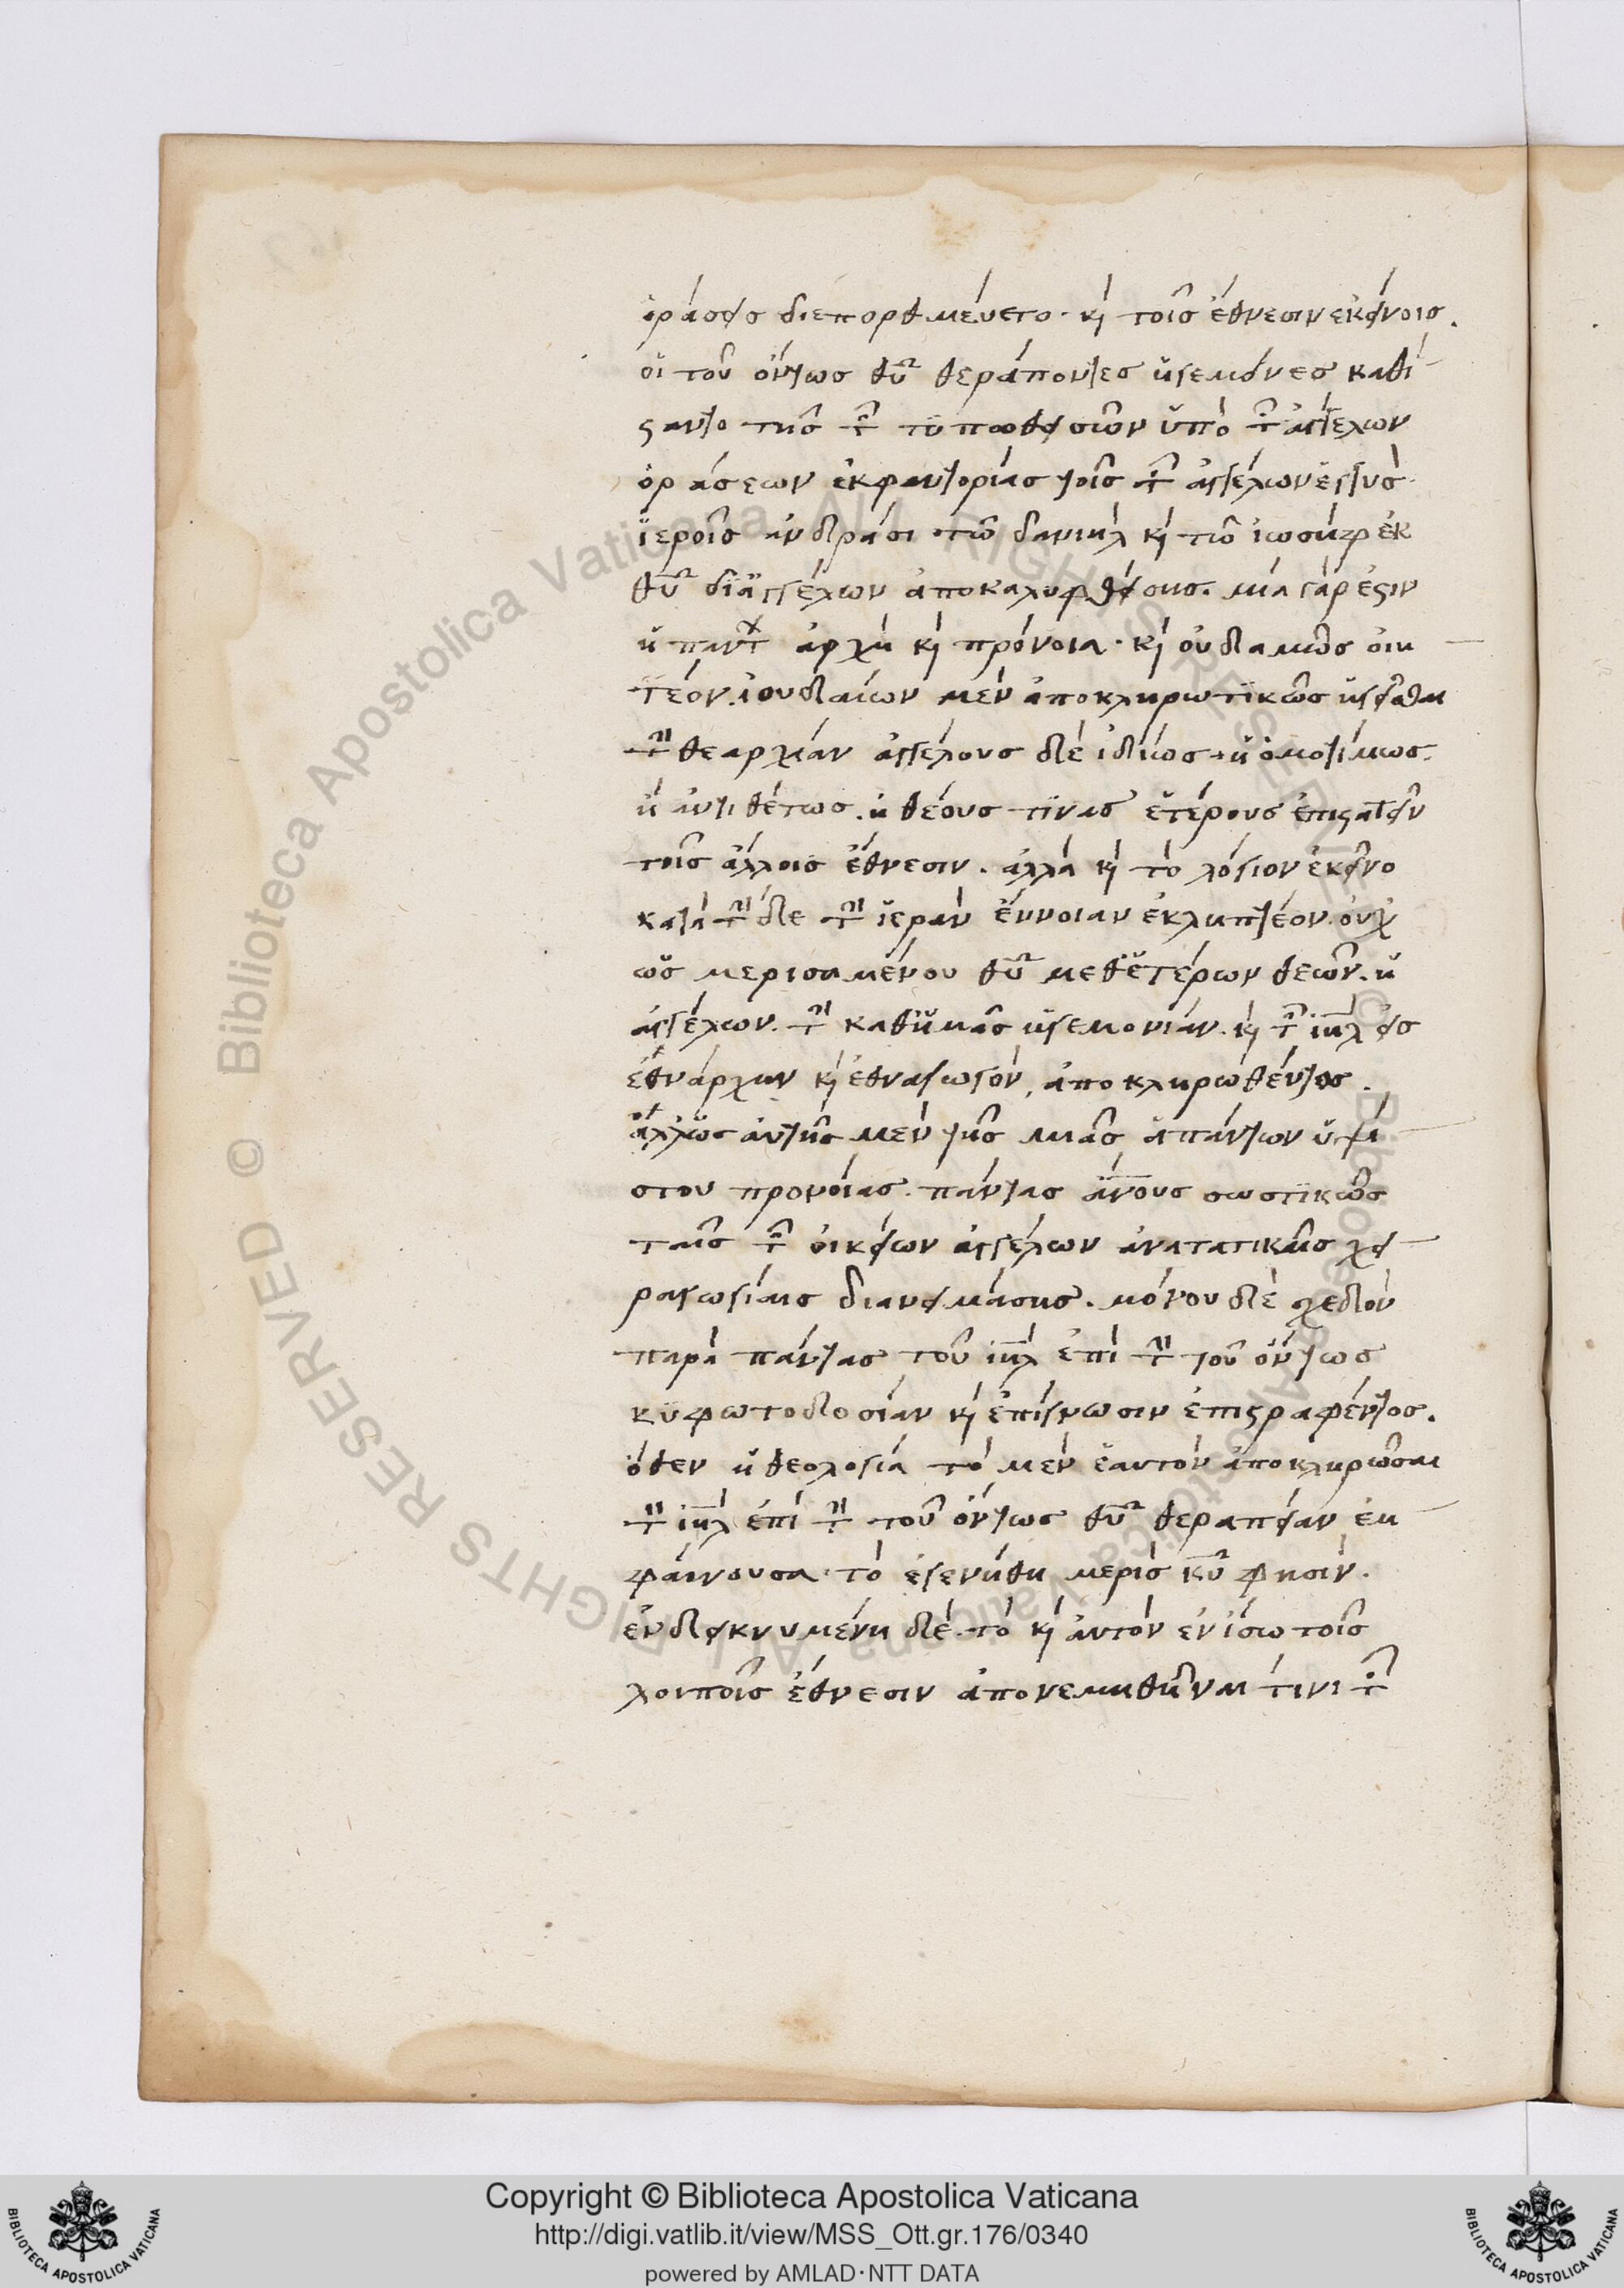 ὁράσεις διεπορθμεύετο· κὶ τοῖς ἔθνεσιν ἐκείνοις.
οἱ τοῦ ὄντως θῦ θεράποντες ἡγεμόνες καθί
σαντο τῆς τ τυπωθεισῶν ὑπὸ τ ἀγγέλων
ὁράσεων ἐκφαντορίας τοῖς τ ἀγγέλων ἐγγὺς
ἱεροῖς ἀνδράσι τῶ δανιὴλ κὶ τῶ ἰωσὴφ ἐκ
θῦ δι' ἀγγέλων ἀποκαλυφθείσης. μία γάρ ἐστιν
ἡ παντ ἀρχὴ κὶ πρόνοια· κὶ οὐδαμῶς οἰη
τέον. ἰουδαίων μὲν ἀποκληρωτικῶς ἡγεῖσθαι
τ θεαρχίαν ἀγγέλους δὲ ἰδίως. ἢ ὁμοτίμως.
ἢ ἀντιθέτως. ἢ θεούς τινας ἑτέρους ἐπιστατεῖν
τοῖς ἄλλοις ἔθνεσιν. ἀλλὰ κὶ τὸ λόγιον ἐκεῖνο
κατὰ τ δε τ ἱερὰν ἔννοιαν ἐκληπτέον. οὐχ
ὡς μερισαμένου θῦ μεθ' ἑτέρων θεῶν. ἢ
ἀγγέλων. τ καθ' ἡμᾶς ἡγεμονίαν. κὶ τ ἰηλ εἰς
ἐθνάρχην κὶ ἐθναγωγὸν, ἀποκληρωθέντος.
ἀλλ' ὡς αὐτῆς μὲν τῆς μιᾶς ἁπάντων ὑψί
στου προνοίας. πάντας ἀνους σωστικῶς
ταῖς τ οἰκείων ἀγγέλων ἀνατατικαῖς χει
ραγωγίαις διανειμάσης. μόνου δὲ σχεδὸν
παρὰ πάντας τοῦ ἰηλ ἐπὶ τ τοῦ ὄντως
κυ φωτοδοσίαν κὶ ἐπίγνωσιν ἐπιστραφέντος.
ὅθεν ἡ θεολογία τὸ μὲν ἑαυτὸν ἀποκληρῶσαι
τ ἰηλ ἐπὶ τ τοῦ ὄντως θῦ θεραπείαν ἐμ
φαίνουσα· τὸ ἐγενήθη μερὶς κῦ φησίν.
ἐνδεικνυμένη δὲ τὸ κὶ αὐτὸν ἐν ἴσω τοῖς
λοιποῖς ἔθνεσιν ἀπονεμηθῆναι τινι τ
Copyright © Biblioteca Apostolica Vaticana
http://digi.vatlib.it/view/MSS_Ott.gr.176/0340
powered by AMLAD·NTT DATA